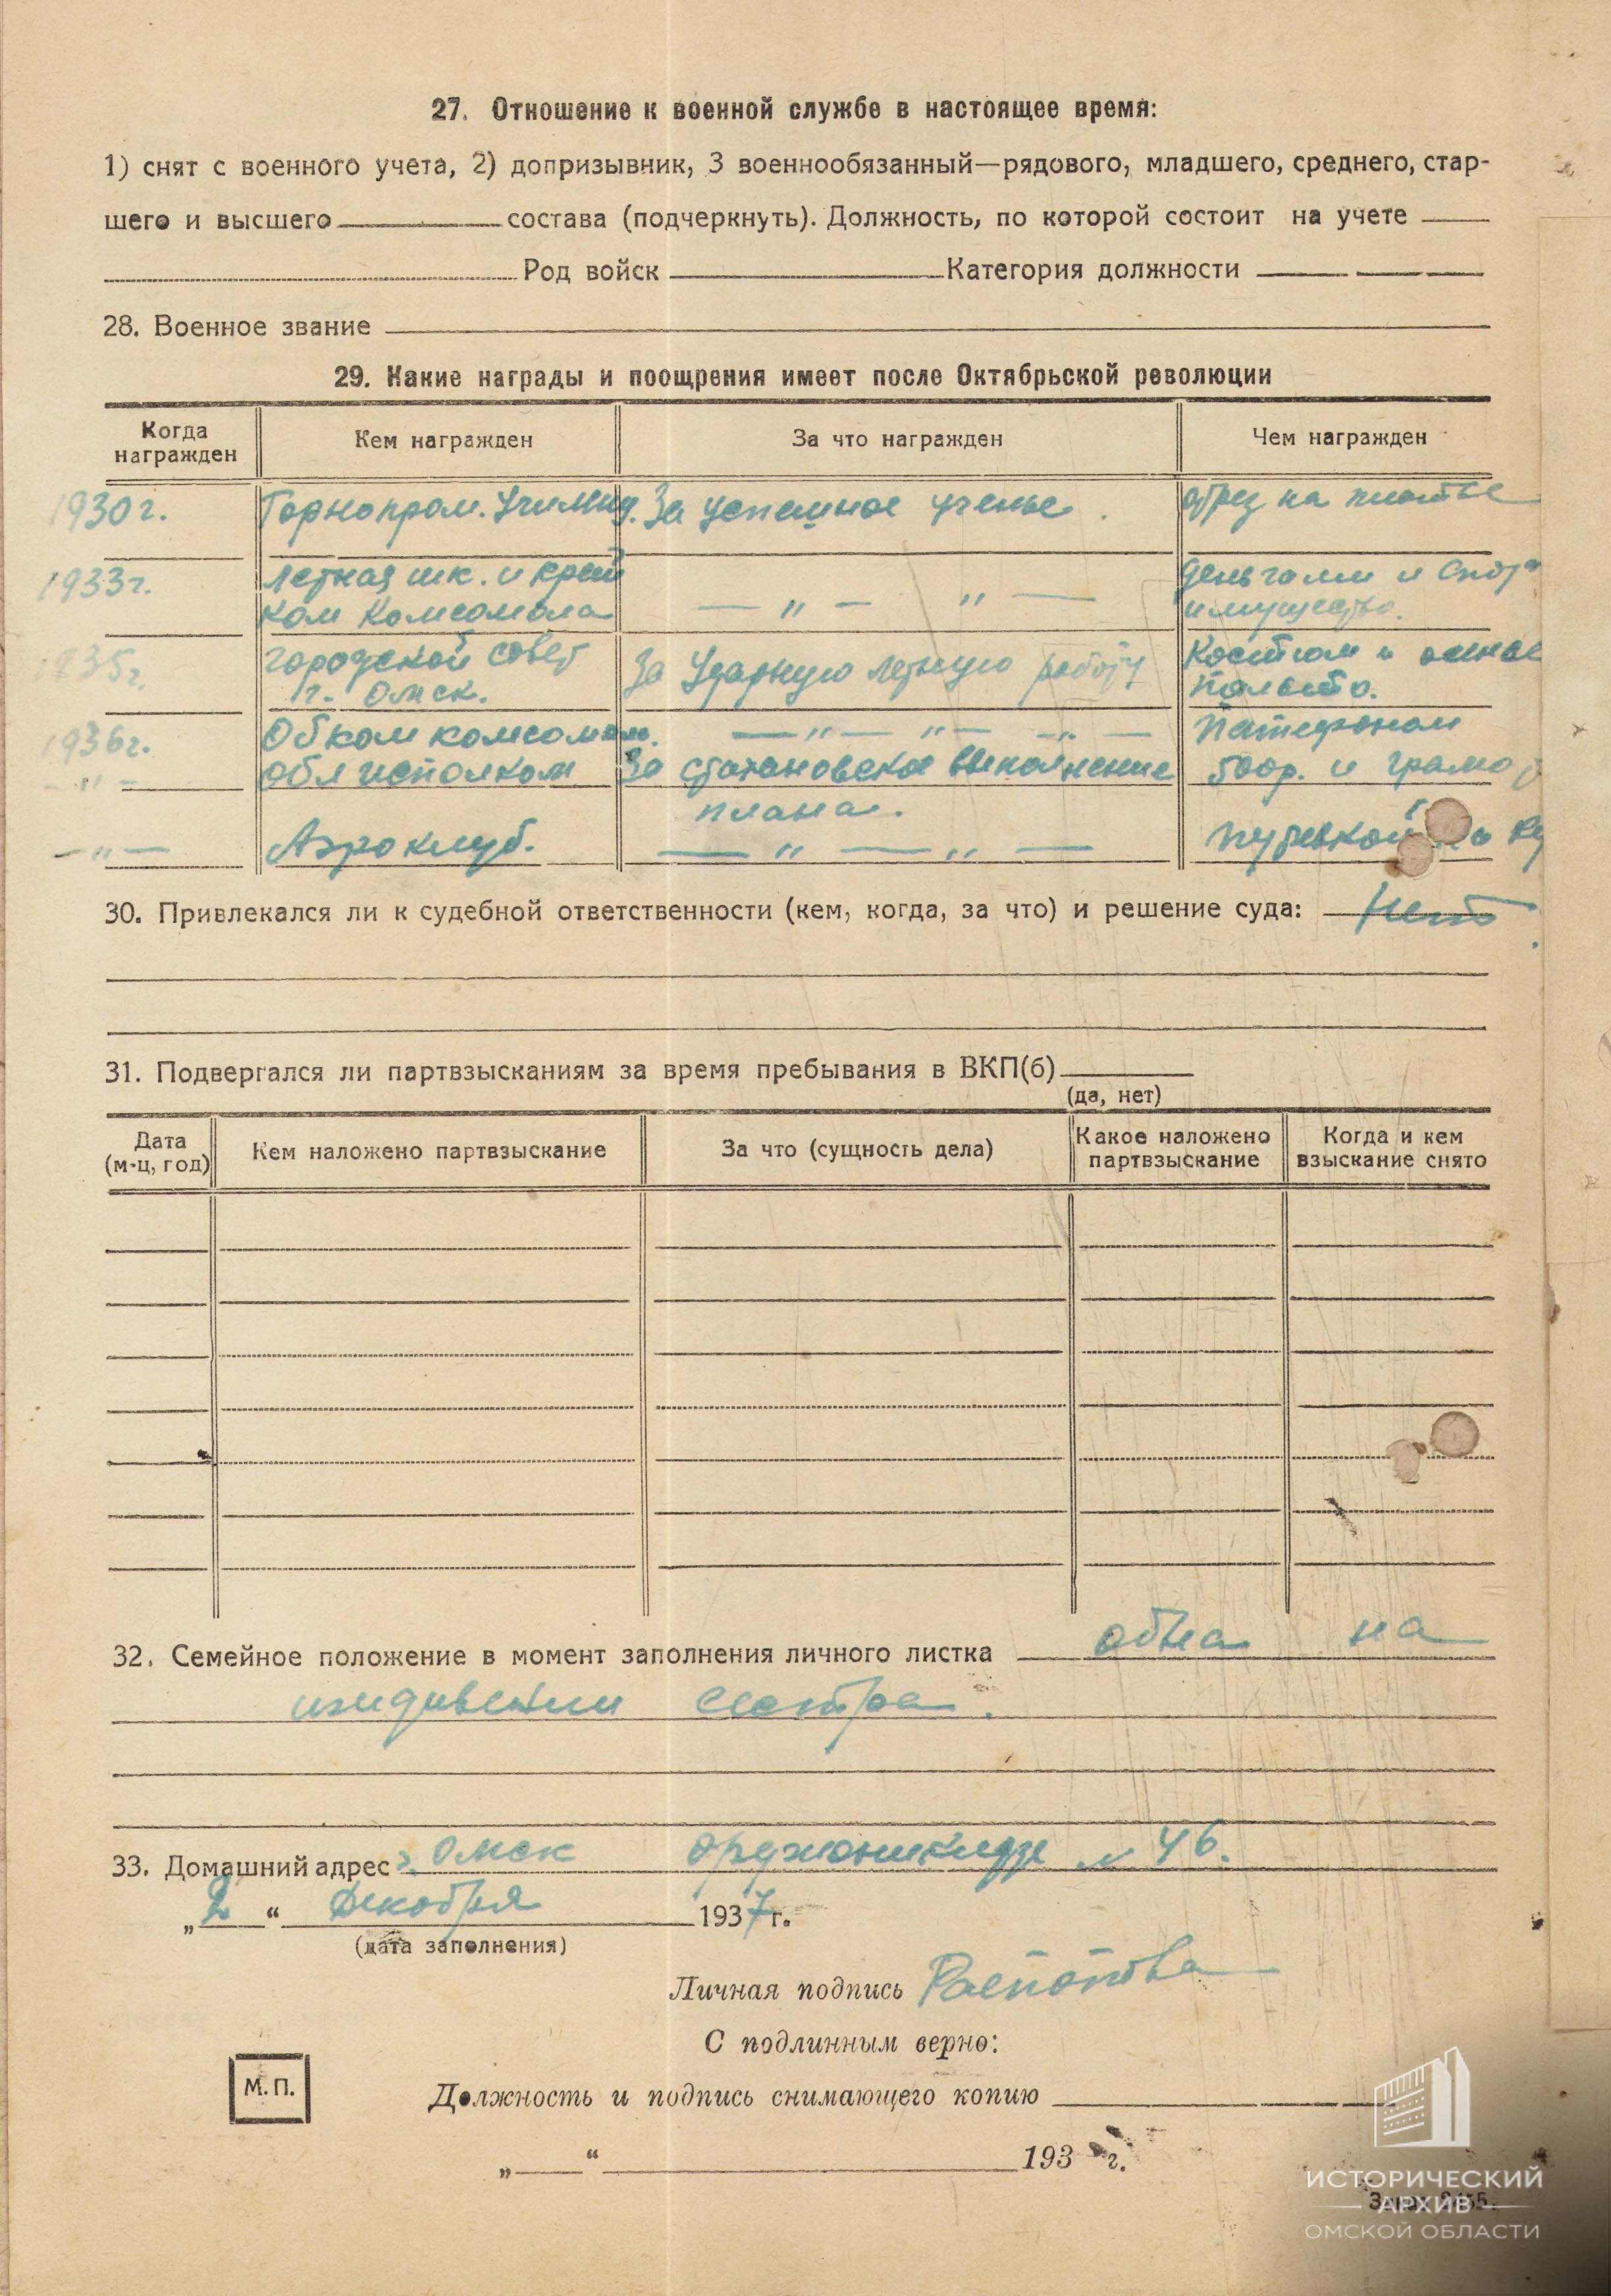 27. Отношение к военной службе в настоящее время:
1) снят с военного учета, 2) допризывник, 3 военнообязанный—рядового, младшего, среднего, стар-
шего и высшего состава (подчеркнуть). Должность, по которой состоит на учете
Род войск Категория должности
28. Военное звание
29. Какие награды и поощрения имеет после Октябрьской революции
Когда награжден Кем награжден За что награжден Чем награжден
1930г. Горнопром. Училищ. За успешное ученье. отрез на платье
1933г. Летная шк. и край деньгами и спорт
ком комсомола — " — " — имущество.
1935г. городской совет За Ударную летную работу Костюм и
г. Омск. пальто.
1936г. Обком комсомола. — " — " — " — Патефоном
— " — Обл исполком За стахановское выполнение и грамо
плана.
— " — Аэроклуб. — " — " — путевкой
30. Привлекался ли к судебной ответственности (кем, когда, за что) и решение суда: Нет.
31. Подвергался ли партвзысканиям за время пребывания в ВКП(б)
(да, нет)
Дата (м-ц, год) Кем наложено партвзыскание За что (сущность дела) Какое наложено партвзыскание Когда и кем взыскание снято
32. Семейное положение в момент заполнения личного листка одна на
иждивении сестра.
33. Домашний адрес г. Омск Орджоникидзе № 46.
„2“ Декабря 1937г.
(дата заполнения)
Личная подпись Распопова
С подлинным верно:
М.П.
Должность и подпись снимающего копию
„ “ 193 г.
ИСТОРИЧЕСКИЙ
АРХИВ
ОМСКОЙ ОБЛАСТИ